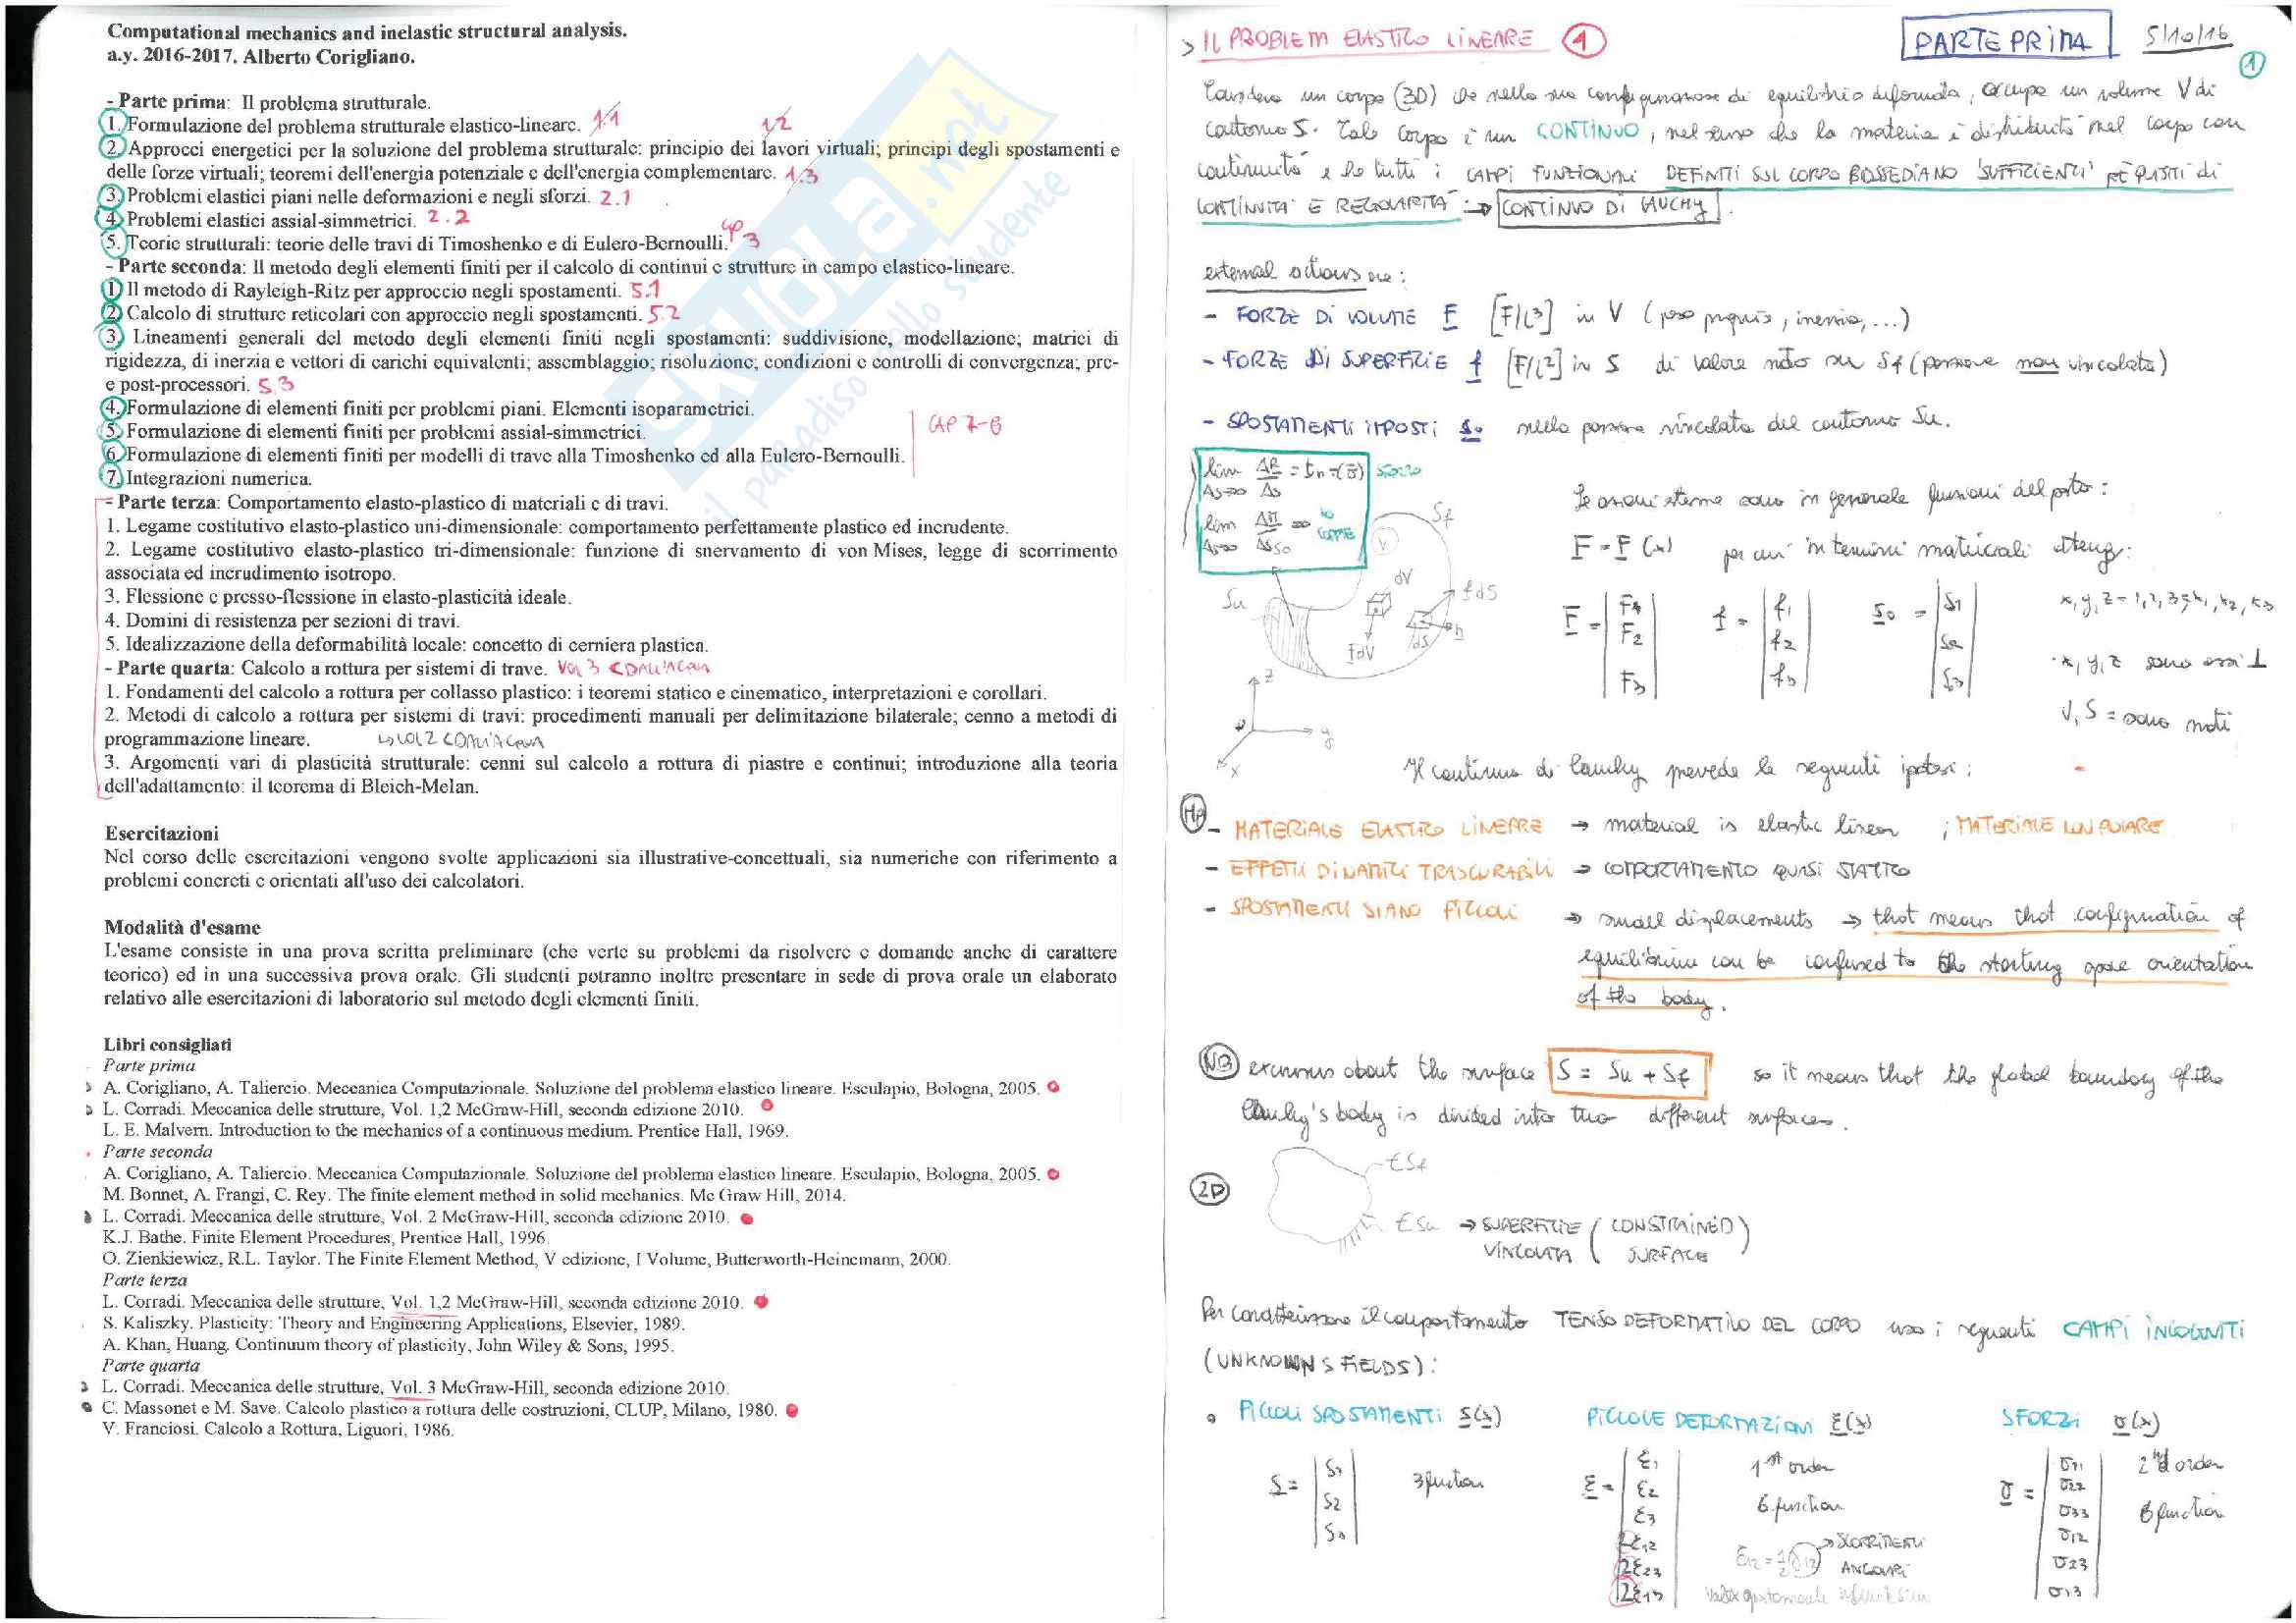 Computational mechanics and inelastic structural analysis.
a.y. 2016-2017. Alberto Corigliano.
- Parte prima: Il problema strutturale.
1. Formulazione del problema strutturale elastico-lineare. 1.1
1.2
2. Approcci energetici per la soluzione del problema strutturale: principio dei lavori virtuali; principi degli spostamenti e
delle forze virtuali; teoremi dell'energia potenziale e dell'energia complementare. 1.3
3. Problemi elastici piani nelle deformazioni e negli sforzi. 2.1
4. Problemi elastici assial-simmetrici. 2.2
5. Teorie strutturali: teorie delle travi di Timoshenko e di Eulero-Bernoulli. cap 3
- Parte seconda: Il metodo degli elementi finiti per il calcolo di continui e strutture in campo elastico-lineare.
1. Il metodo di Rayleigh-Ritz per approccio negli spostamenti. 5.1
2. Calcolo di strutture reticolari con approccio negli spostamenti. 5.2
3. Lineamenti generali del metodo degli elementi finiti negli spostamenti: suddivisione, modellazione; matrici di
rigidezza, di inerzia e vettori di carichi equivalenti; assemblaggio; risoluzione; condizioni e controlli di convergenza; pre-
e post-processori. 5.3
4. Formulazione di elementi finiti per problemi piani. Elementi isoparametrici.
5. Formulazione di elementi finiti per problemi assial-simmetrici.
CAP 7-8
6. Formulazione di elementi finiti per modelli di trave alla Timoshenko ed alla Eulero-Bernoulli.
7. Integrazioni numerica.
- Parte terza: Comportamento elasto-plastico di materiali e di travi.
1. Legame costitutivo elasto-plastico uni-dimensionale: comportamento perfettamente plastico ed incrudente.
2. Legame costitutivo elasto-plastico tri-dimensionale: funzione di snervamento di von Mises, legge di scorrimento
associata ed incrudimento isotropo.
3. Flessione e presso-flessione in elasto-plasticità ideale.
4. Domini di resistenza per sezioni di travi.
5. Idealizzazione della deformabilità locale: concetto di cerniera plastica.
- Parte quarta: Calcolo a rottura per sistemi di trave. Vol 3
1. Fondamenti del calcolo a rottura per collasso plastico: i teoremi statico e cinematico, interpretazioni e corollari.
2. Metodi di calcolo a rottura per sistemi di travi: procedimenti manuali per delimitazione bilaterale; cenno a metodi di
programmazione lineare. ↳ vol 2
3. Argomenti vari di plasticità strutturale: cenni sul calcolo a rottura di piastre e continui; introduzione alla teoria
dell'adattamento: il teorema di Bleich-Melan.
Esercitazioni
Nel corso delle esercitazioni vengono svolte applicazioni sia illustrative-concettuali, sia numeriche con riferimento a
problemi concreti e orientati all'uso dei calcolatori.
Modalità d'esame
L'esame consiste in una prova scritta preliminare (che verte su problemi da risolvere e domande anche di carattere
teorico) ed in una successiva prova orale. Gli studenti potranno inoltre presentare in sede di prova orale un elaborato
relativo alle esercitazioni di laboratorio sul metodo degli elementi finiti.
Libri consigliati
Parte prima
A. Corigliano, A. Taliercio. Meccanica Computazionale. Soluzione del problema elastico lineare. Esculapio, Bologna, 2005.
L. Corradi. Meccanica delle strutture, Vol. 1,2 McGraw-Hill, seconda edizione 2010.
L. E. Malvern. Introduction to the mechanics of a continuous medium. Prentice Hall, 1969.
Parte seconda
A. Corigliano, A. Taliercio. Meccanica Computazionale. Soluzione del problema elastico lineare. Esculapio, Bologna, 2005.
M. Bonnet, A. Frangi, C. Rey. The finite element method in solid mechanics. Mc Graw Hill, 2014.
L. Corradi. Meccanica delle strutture, Vol. 2 McGraw-Hill, seconda edizione 2010.
K.J. Bathe. Finite Element Procedures, Prentice Hall, 1996.
O. Zienkiewicz, R.L. Taylor. The Finite Element Method, V edizione, I Volume, Butterworth-Heinemann, 2000.
Parte terza
L. Corradi. Meccanica delle strutture, Vol. 1,2 McGraw-Hill, seconda edizione 2010.
S. Kaliszky. Plasticity: Theory and Engineering Applications, Elsevier, 1989.
A. Khan, Huang. Continuum theory of plasticity, John Wiley & Sons, 1995.
Parte quarta
L. Corradi. Meccanica delle strutture, Vol. 3 McGraw-Hill, seconda edizione 2010.
C. Massonet e M. Save. Calcolo plastico a rottura delle costruzioni, CLUP, Milano, 1980.
V. Franciosi. Calcolo a Rottura, Liguori, 1986.
SKUOLA.net
il paradiso dello studente
> IL PROBLEMA ELASTICO LINEARE 1
PARTE PRIMA
5/10/16
1
Considero un corpo (3D) che nella sua configurazione di equilibrio deformata, occupa un volume V di
contorno S. Tale corpo è un CONTINUO, nel senso che la materia è distribuita nel corpo con
continuità e che tutti i CAMPI FUNZIONALI DEFINITI SUL CORPO POSSEDIANO SUFFICIENTI REQUISITI di
CONTINUITA' E REGOLARITA' :→ CONTINUO DI CAUCHY.
external actions are:
- FORZE DI VOLUME F [F/L³] in V (peso proprio, inerzia, ...)
- FORZE DI SUPERFICIE f [F/L²] in S di valore noto su Sf (porzione non vincolata)
- SPOSTAMENTI IMPOSTI s₀ nella porzione vincolata del contorno Su.
lim ΔR/ΔS = tn = (σ) sforzo
ΔS→0
lim ΔM/ΔS → 0
ΔS→0
Sf
V
dV
f dS
Su
n
dS
F dV
z
y
x
Le azioni esterne sono in generale funzioni del posto:
F = F(x) per cui in termini matriciali ottengo:
F = | F1 F2 F3 | f = | f1 f2 f3 | s₀ = | s1 s2 s3 |
x, y, z = 1, 2, 3 = x1, x2, x3
· x, y, z sono assi ⊥
V, S = sono noti
Il continuo di Cauchy prevede le seguenti ipotesi:
Hp
- MATERIALE ELASTICO LINEARE → material is elastic linear ; MATERIALE NON POLARE
- EFFETTI DINAMICI TRASCURABILI → COMPORTAMENTO QUASI STATICO
- SPOSTAMENTI SIANO PICCOLI → small displacements → that means that configuration of
equilibrium can be confused to the starting space orientation
of the body.
NB excursus about the surface S = Su + Sf so it means that the global boundary of the
Cauchy's body is divided into two different surfaces.
2D
∈ Sf
∈ Su → SUPERFICIE VINCOLATA (CONSTRAINED SURFACE)
Per caratterizzare il comportamento TENSO DEFORMATIVO DEL CORPO uso i seguenti CAMPI INCOGNITI
(UNKNOWNS FIELDS):
• PICCOLI SPOSTAMENTI s(x) PICCOLE DEFORMAZIONI ε(x) SFORZI σ(x)
s = | s1 s2 s3 | 3 function
ε = | ε1 ε2 ε3 2ε12 2ε23 2ε13 | 1st order
6 function
ε12 = 1/2 γ12 → SCORRIMENTI
ANGOLARI
σ = | σ11 σ22 σ33 σ12 σ23 σ13 | 2nd order
6 function